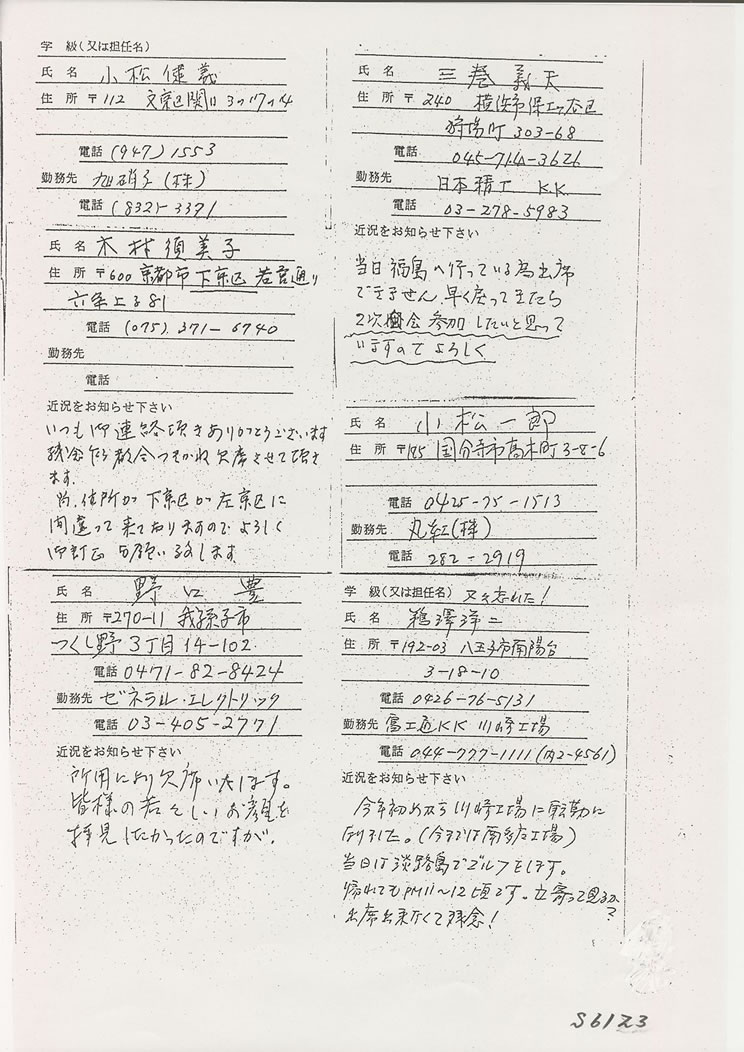 学　級(又は担任名)
氏　名　小松健義
住　所　〒112　文京区関口 3の17の4
電話　(947) 1553
勤務先　旭硝子(株)
電話　(832)-3371
氏　名　木村須美子
住　所　〒600 京都市下京区 若宮通り
六条上る81
電話　(075) 371-6740
勤務先
電話
近況をお知らせ下さい
いつも御連絡頂きありがとうございます
残念ながら都合つきかね欠席させて頂き
ます.
尚、住所が下京区が左京区に
間違って来ておりますのでよろしく
御訂正お願い致します
氏　名　野口　豊
住　所　〒270-11 我孫子市
つくし野 3丁目 14-102
電話 0471-82-8424
勤務先 ゼネラル・エレクトリック
電話 03-405-2771
近況をお知らせ下さい
所用により欠席いたします。
皆様の若々しいお顔を
拝見したかったのですが.
氏　名　三巻義夫
住　所　〒240　横浜市保土ヶ谷区
狩場町 303-68
電話　045-714-3626
勤務先　日本精工 K.K.
電話　03-278-5983
近況をお知らせ下さい
当日福島へ行っている為出席
できません、早く戻ってきたら
2次会 参加したいと思って
いますのでよろしく
氏　名　小松一郎
住　所　〒185 国分寺市高木町 3-8-6
電話　0425-75-1513
勤務先　丸紅(株)
電話　282-2919
学　級(又は担任名)　又々忘れた!
氏　名　鵜澤洋二
住　所　〒192-03 八王子市南陽台
3-18-10
電話　0426-76-5131
勤務先　富士通KK 川崎工場
電話　044-777-1111(内2-4561)
近況をお知らせ下さい
今年初めから川崎工場に転勤に
なりました。(今までは南多摩工場)
当日は淡路島でゴルフをします。
帰れてもPM11〜12頃です。立寄って見るか?
出席出来なくて残念!
S61Z3